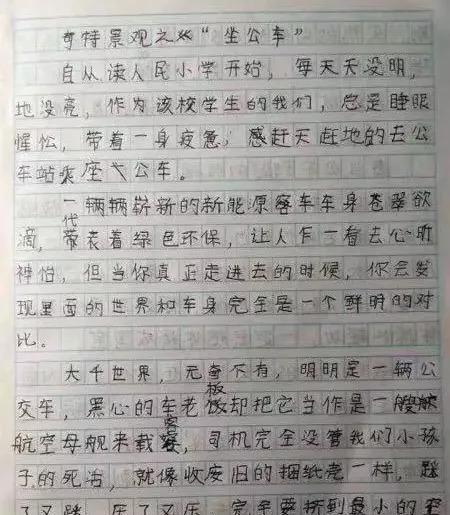 奇特景观之“坐公车”
自从读人民小学开始，每天天没明，
地没亮，作为该校学生的我们，总是睡眼
惺忪，带着一身疲惫，感赶天赶地的去公
车站乘座公车。
一辆辆崭新的新能原客车车身苍翠欲
滴，代表着绿色环保，让人乍一看去心旷
神怡，但当你真正走进去的时候，你会发
现里面的世界和车身完全是一个鲜明的对
比。
大千世界，无奇不有，明明是一辆公
交车，黑心的车老板却把它当作是一艘
航空母舰来载客，司机完全没管我们小孩
子的死活，就像收废旧的捆纸壳一样，踩
了又踩，压了又压，完全要挤到最小的空